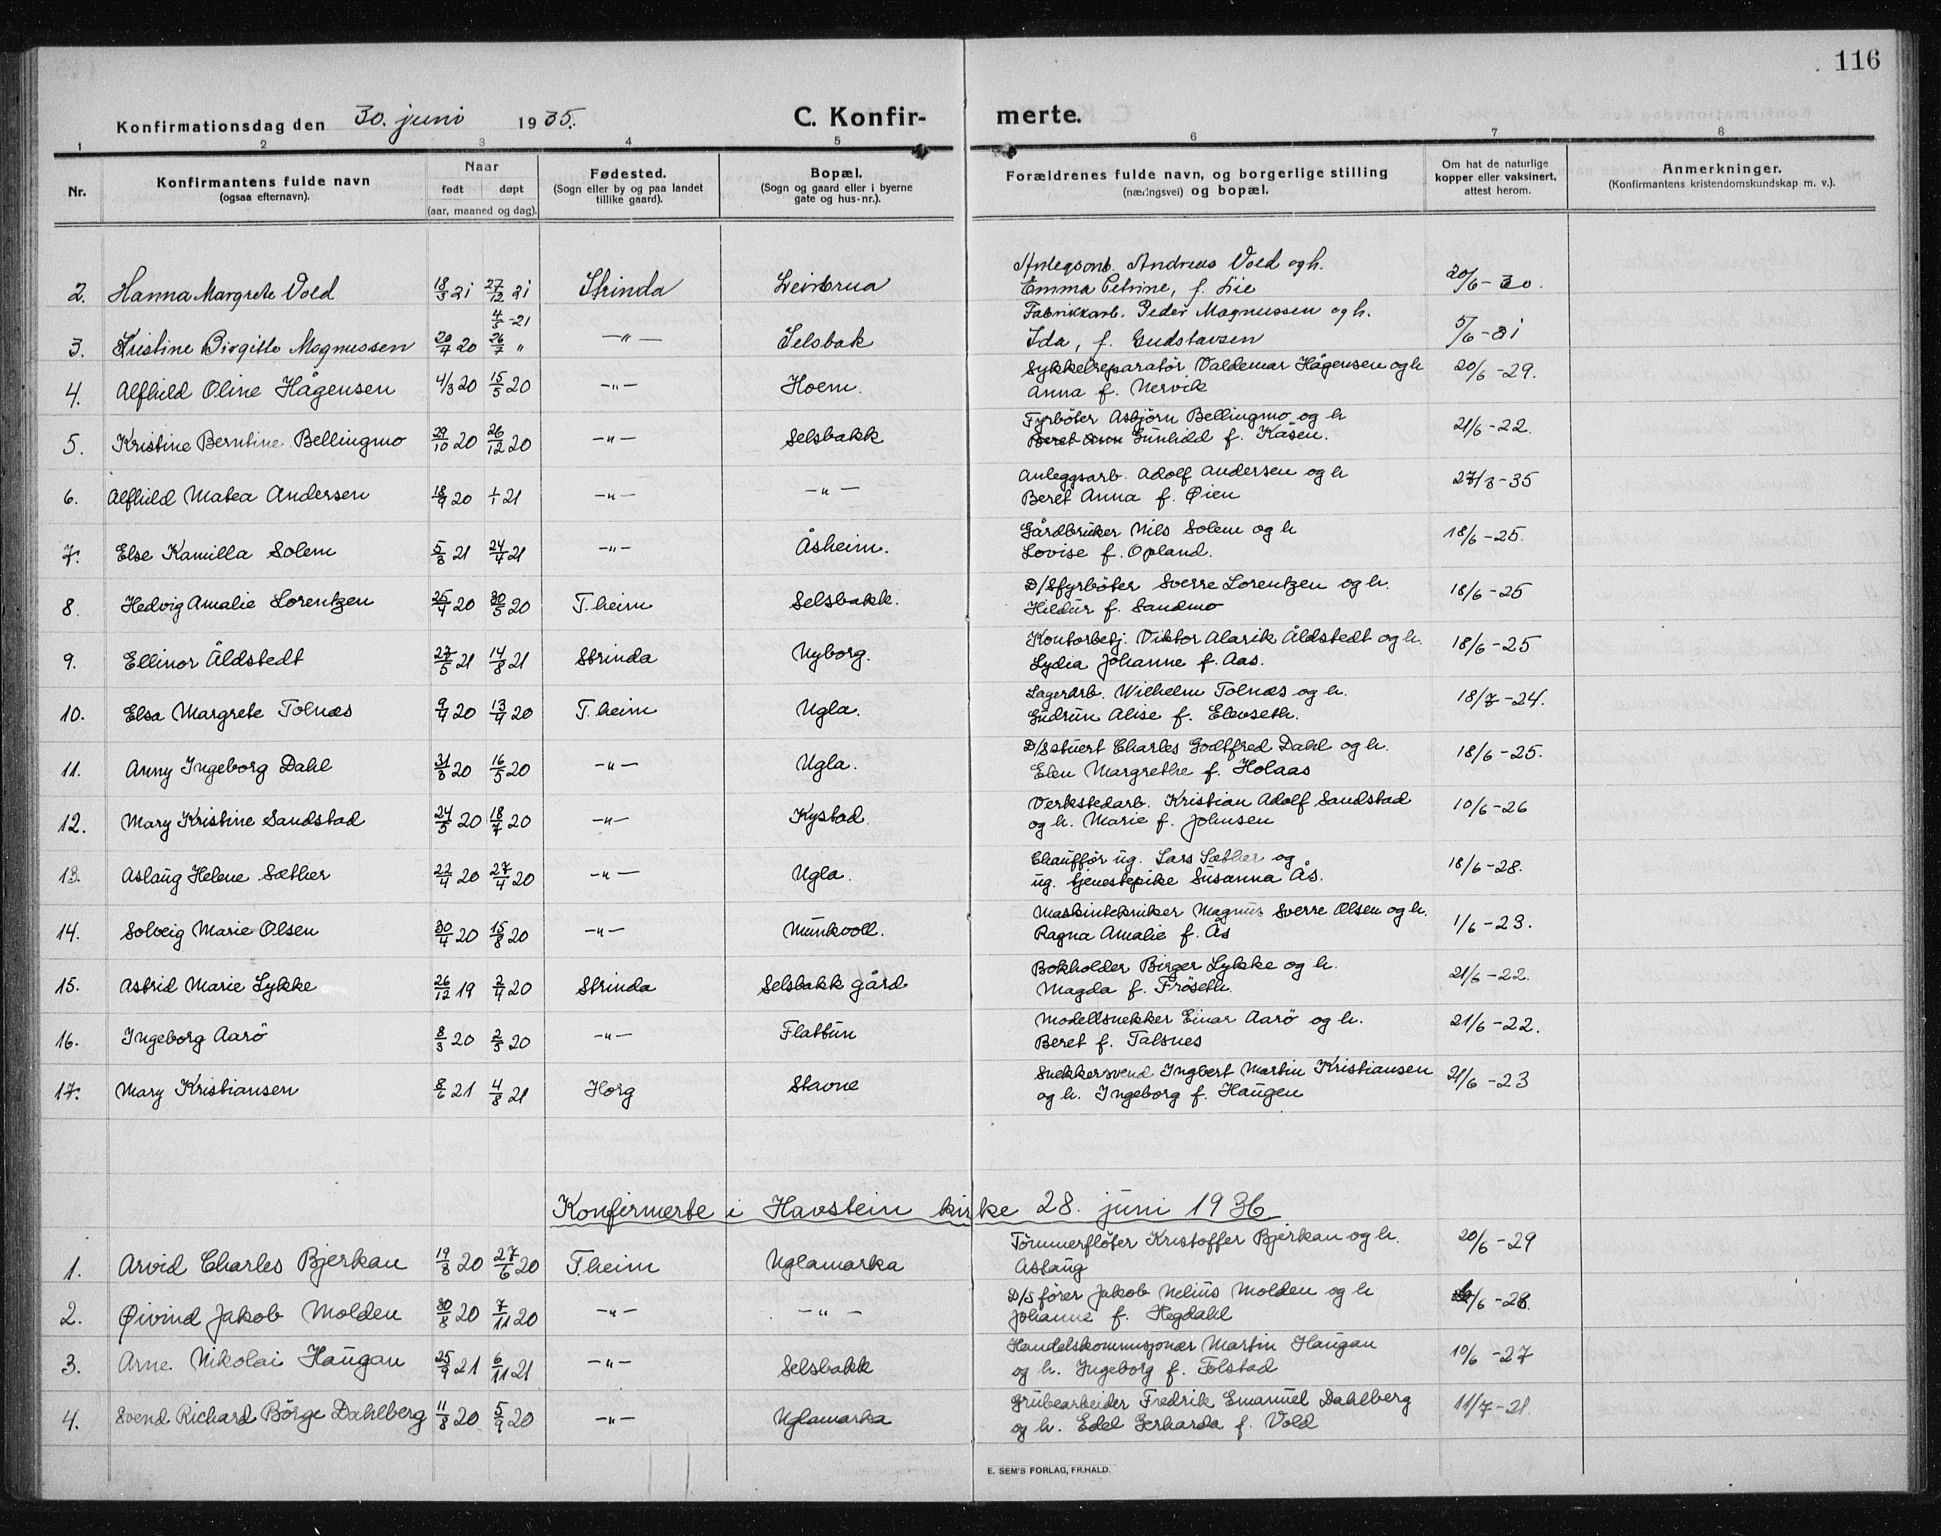 116
Konfirmationsdag den 30. juni 1935. C. Konfir- merte.
1 2 3 4 5 6 7 8
Nr. Konfirmantens fulde navn (ogsaa efternavn). Naar født døpt (aar, maaned og dag). Fødested. (Sogn eller by og paa landet tillike gaard). Bopæl. (Sogn og gaard eller i byerne gate og hus-nr.). Forældrenes fulde navn, og borgerlige stilling (næringsvei) og bopæl. Om hat de naturlige kopper eller vaksinert, attest herom. Anmerkninger. (Konfirmantens kristendomskundskap m. v.).
Anlegsarb. Andreas Vold og h.
2. Hanna Margrete Vold 18/3 21 27/12 21 Strinda Leirbrua Emma Petrine, f. Lie 20/6-30.
4/5-21 Fabrikkarb. Peder Magnussen og h.
3. Kristine Birgitte Magnussen 20 26/7 " —"— Selsbak Ida, f. Gudstavsen 5/6-31
Sykkelreparatør Valdemar Hågensen og h
4. Alfhild Oline Hågensen 4/3 20 15/5 20 —"— Hoem. Anna f. Nervik 20/6-29.
Fyrbøter Asbjörn Bellingmo og h
5. Kristine Berntine Bellingmo 29/10 20 26/12 20 —"— Selsbakk Beret Ann Gunhild f. Kåsen. 21/6-22.
Anleggsarb. Adolf Andersen og h
6. Alfhild Matea Andersen 18/9 20 1/1 21 —"— —"— Beret Anna f. Øien 27/3-35
Gårdbruker Nils Solem og h
7. Else Kamilla Solem 5/3 21 24/4 21 —"— Åsheim. Lovise f. Opland. 18/6-25.
D/Sfyrbøter Sverre Lorentzen og h.
8. Hedvig Amalie Lorentzen 25/4 20 30/5 20 T.heim Selsbakk. Hildur f. Sandmo 18/6-25
Kontorbetj. Viktor Alarik Åldstedt og h.
9. Ellinor Åldstedt 27/5 21 14/8 21 Strinda Nyborg. Lydia Johanne f. Aas. 18/6-25
Lagerarb. Wilhelm Tolnæs og h.
10. Elsa Margrete Tolnæs 9/4 20 13/4 20 T.heim Ugla. Gudrun Alise f. Elevseth. 18/7-24.
D/Sstuert Charles Godtfred Dahl og h.
11. Anny Ingeborg Dahl 31/3 20 16/5 20 —"— Ugla. Elen Margrethe f. Holaas 18/6-25.
Verkstedarb. Kristian Adolf Sandstad
12. Mary Kristine Sandstad 24/5 20 18/7 20 —"— Kystad og h. Marie f. Johnsen 10/6-26
Chauffør ug. Lars Sæther og
13. Aslaug Helene Sæther 22/4 20 27/4 20 —"— Ugla. ug. tjenestepike Susanna Ås. 18/6-28.
Maskintekniker Magnus Sverre Olsen og h.
14. Solveig Marie Olsen 30/4 20 15/8 20 —"— Munkvoll. Ragna Amalie f. Ås 1/6-23.
Bokholder Birger Lykke og h.
15. Astrid Marie Lykke 26/12 19 2/4 20 Strinda Selsbakk gård Magda f. Frøseth. 21/6-22.
Modellsnekker Einar Aarö og h.
16. Ingeborg Aarö 8/3 20 2/5 20 —"— Flattun Beret f. Talsnes 21/6-22.
Snekkersvend Ingbert Martin Kristiansen
17. Mary Kristiansen 8/6 21 4/8 21 Horg Stavne og h. Ingeborg f. Haugen 21/6-23
Konfirmerte i Havstein kirke 28. juni 1936
Tömmerflöter Kristoffer Bjerkan og h.
1. Arvid Charles Bjerkan 19/8 20 27/6 20 T.heim Uglamarka Aslaug 20/6-29
D/S fører Jakob Nelius Molden og h
2. Øivind Jakob Molden 30/8 20 7/11 20 —"— —"— Johanne f. Hegdahl /6-28.
Handelskommisjonær Martin Haugan
3. Arne Nikolai Haugan 25/9 21 6/11 21 —"— Selsbakk og h. Ingeborg f. Tolstad 10/6-27
Grubearbeider Fredrik Emanuel Dahlberg
4. Svend Richard Börge Dahlberg 11/8 20 5/9 20 —"— Uglamarka og h. Edel Gerharda f. Vold 11/7-21
E. SEM'S FORLAG, FR.HALD.